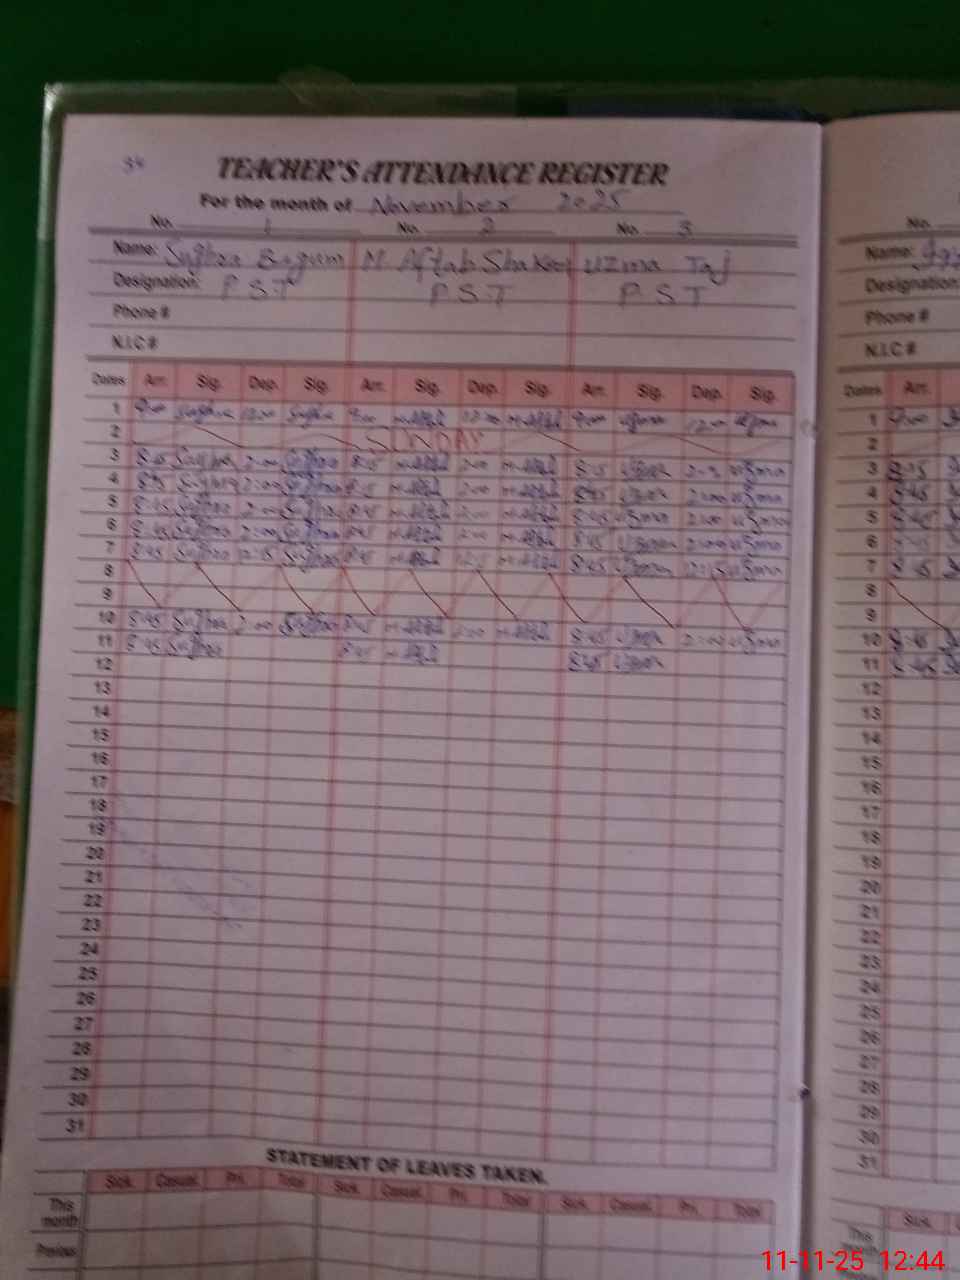 34
TEACHER'S ATTENDANCE REGISTER
For the month of November 2025
No. 1 No. 2 No. 3
Name: Sughra Begum M. Aftab Shakeel Uzma Taj
Designation: P.S.T P.S.T P.S.T
Phone #
N.I.C #
Dates Arr. Sig. Dep. Sig. Arr. Sig. Dep. Sig. Arr. Sig. Dep. Sig.
1 9:00 Sughra 12:00 Sughra 9:00 M-Aftab 12:00 M-Aftab 9:00 Uzma 12:00 Uzma
2 SUNDAY
3 8:45 Sughra 2:00 Sughra 8:45 M-Aftab 2:00 M-Aftab 8:45 Uzma 2:00 Uzma
4 8:45 Sughra 2:00 Sughra 8:45 M-Aftab 2:00 M-Aftab 8:45 Uzma 2:00 Uzma
5 8:45 Sughra 2:00 Sughra 8:45 M-Aftab 2:00 M-Aftab 8:45 Uzma 2:00 Uzma
6 8:45 Sughra 2:00 Sughra 8:45 M-Aftab 2:00 M-Aftab 8:45 Uzma 2:00 Uzma
7 8:45 Sughra 12:15 Sughra 8:45 M-Aftab 12:15 M-Aftab 8:45 Uzma 12:15 Uzma
8
9
10 8:45 Sughra 2:00 Sughra 8:45 M-Aftab 2:00 M-Aftab 8:45 Uzma 2:00 Uzma
11 8:45 Sughra 8:45 M-Aftab 8:45 Uzma
12
13
14
15
16
17
18
19
20
21
22
23
24
25
26
27
28
29
30
31
STATEMENT OF LEAVES TAKEN.
Sick. Casual. Pri. Total Sick. Casual. Pri. Total Sick. Casual. Pri. Total
This month
Previous
No.
Name:
Designation:
Phone #
N.I.C #
Dates Arr.
1 9:00
2
3 8:45
4 8:45
5 8:45
6 8:45
7 8:45
8
9
10 8:45
11 8:45
12
13
14
15
16
17
18
19
20
21
22
23
24
25
26
27
28
29
30
31
Sick.
This month
11-11-25 12:44